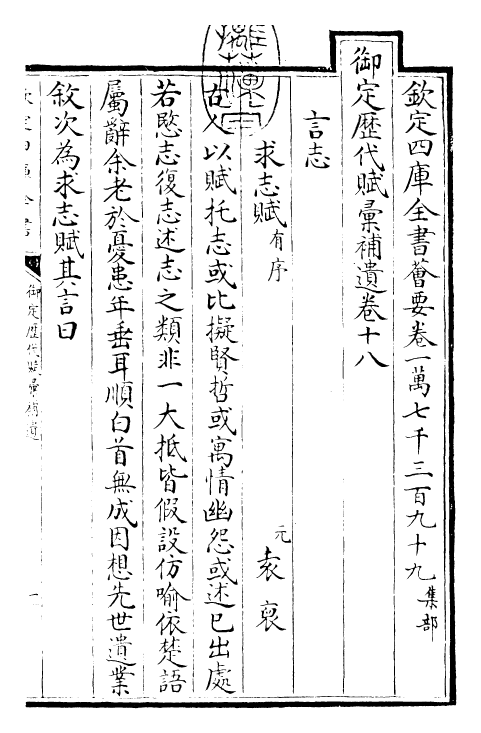 欽定四庫全書薈要卷一萬七千三百九十九集部
御定歷代賦彙補遺卷十八
言志
求志賦有序 元袁裒
古人以賦托志或比擬賢哲或寓情幽怨或述已出處
若愍志復志述志之類非一大抵皆假設仿喻依楚語
屬辭余老於憂患年垂耳順白首無成因想先世遺業
敘次為求志賦其言曰
欽定四庫全書
御定歷代賦彙補遺
一